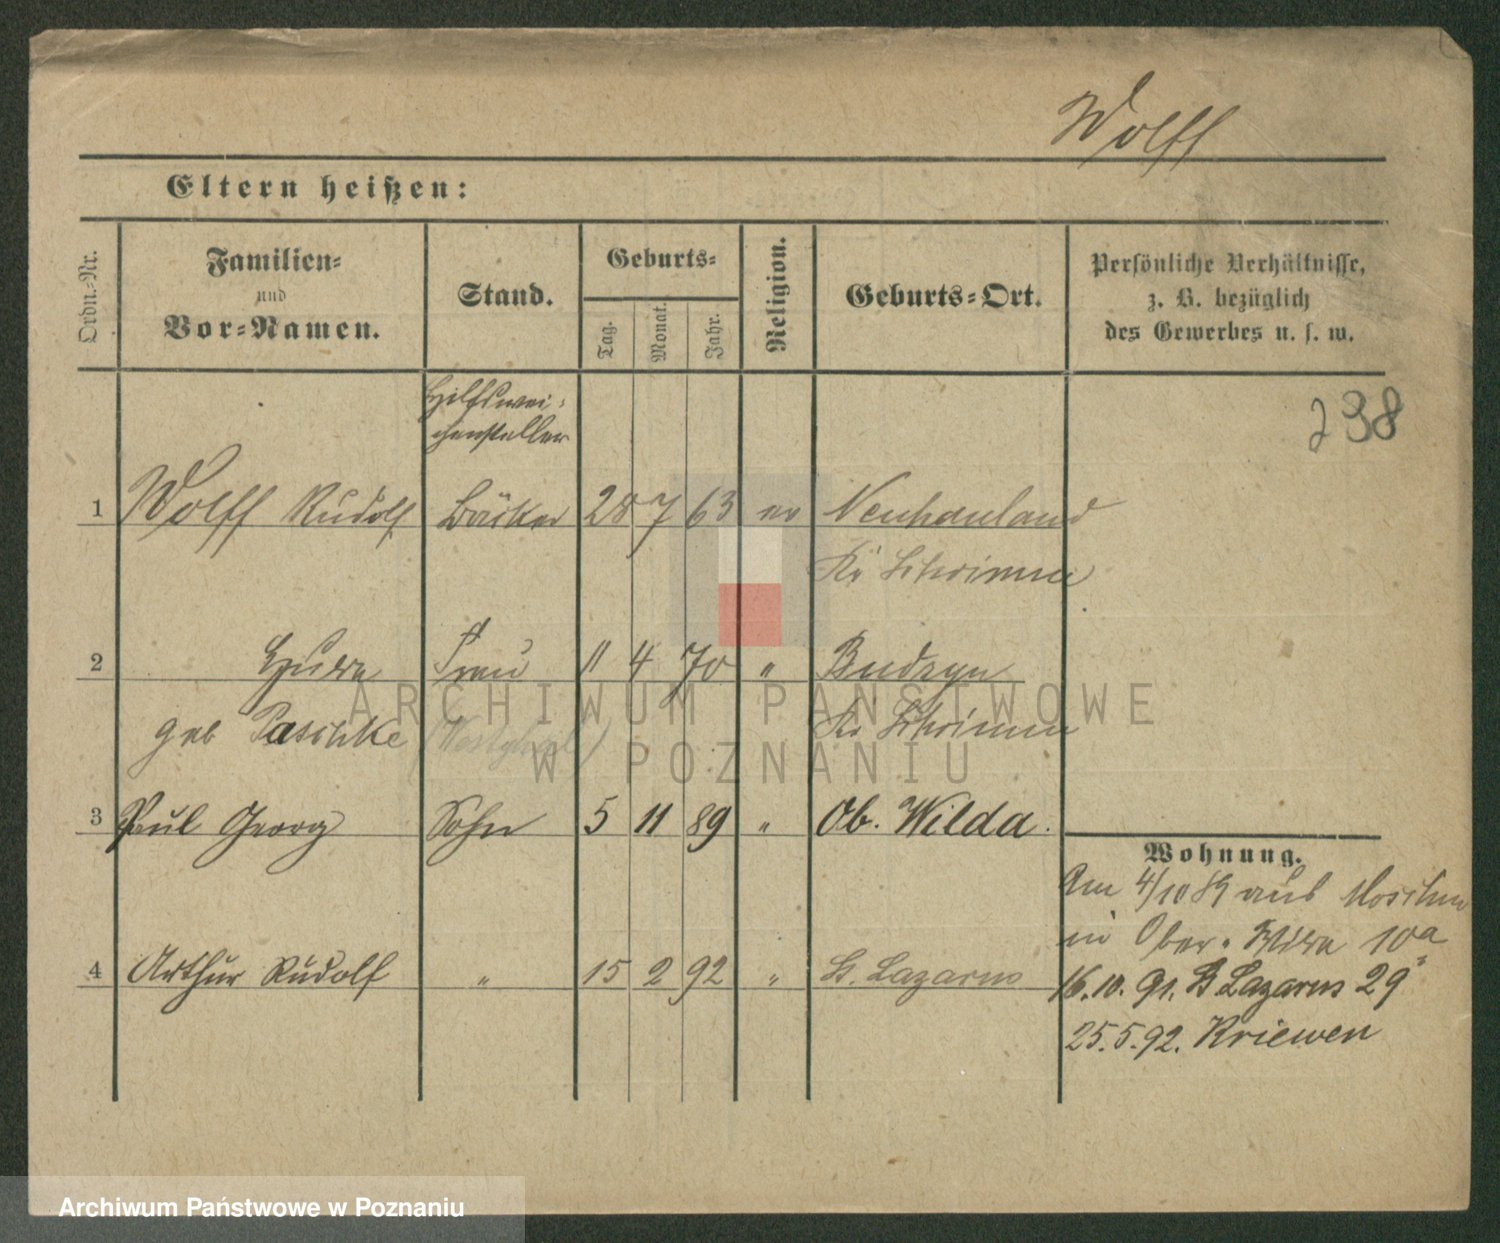 Wolff
Eltern heißen:
Ordn.-Nr.
Familien-
und
Vor-Namen.
Stand.
Geburts-
Tag.
Monat.
Jahr.
Religion.
Geburts-Ort.
Persönliche Verhältnisse,
z. B. bezüglich
des Gewerbes u. s. w.
238
Hilfswei-
chensteller
1 Wolff Rudolf Bäcker 28 7 63 ev Neuhauland
Kr Schrimm
2 Hulda Frau 11 4 70 " Budzyn
geb Paschke Kr Schrimm
3 Paul Georg Sohn 5 11 89 " Ob. Wilda.
Wohnung.
Am 4/10 89 aus Moschin
in Ober-Wilda 10a
4 Arthur Rudolf " 15 2 92 " St. Lazarus
16.10.91. St Lazarus 29
25.5.92. Kriewen
ARCHIWUM PAŃSTWOWE
W POZNANIU
Archiwum Państwowe w Poznaniu